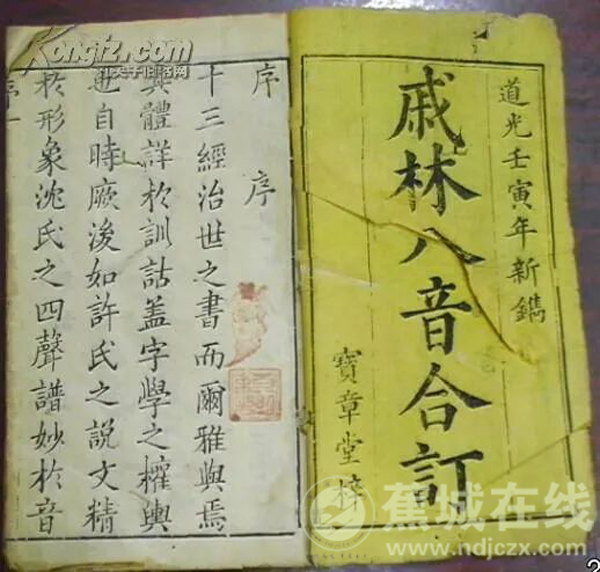 道光壬寅年新鐫
戚林八音合訂
寶章堂梓
序 序
十三經治世之書而爾雅與焉
其體詳於訓詁盖字學之權輿
也自時厥後如許氏之説文精
於形象沈氏之四聲譜妙於音
序
Kongfz.com
蕉城在线
www.ndjczx.com
2